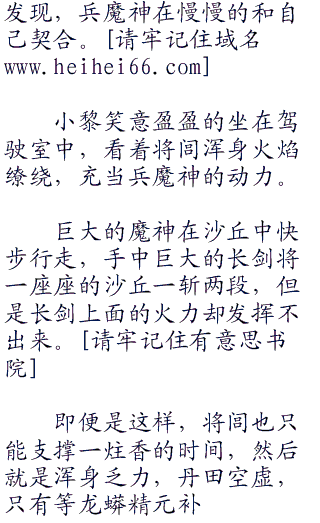 发现，兵魔神在慢慢的和自
己契合。[请牢记住域名
www.heihei66.com]
小黎笑意盈盈的坐在驾
驶室中，看着将闾浑身火焰
缭绕，充当兵魔神的动力。
巨大的魔神在沙丘中快
步行走，手中巨大的长剑将
一座座的沙丘一斩两段，但
是长剑上面的火力却发挥不
出来。[请牢记住有意思书
院]
即便是这样，将闾也只
能支撑一炷香的时间，然后
就是浑身乏力，丹田空虚，
只有等龙蟒精元补